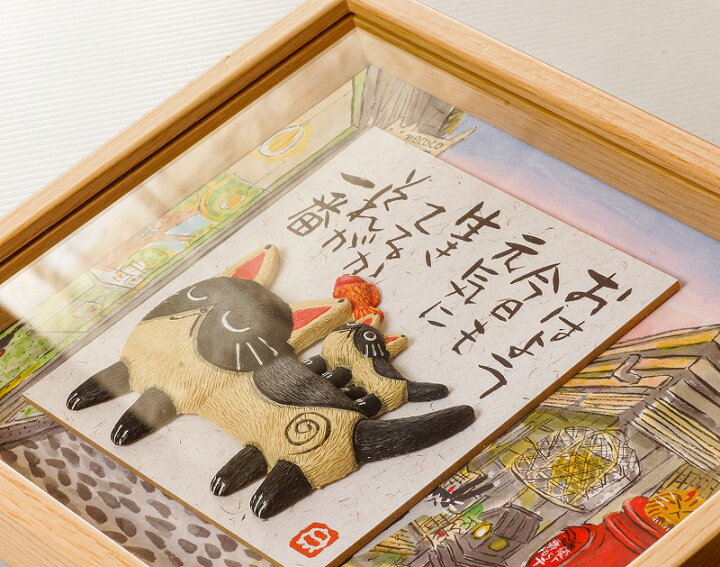 おはよう
今日も
元気に
生き
てるか
それが
一番
necoco